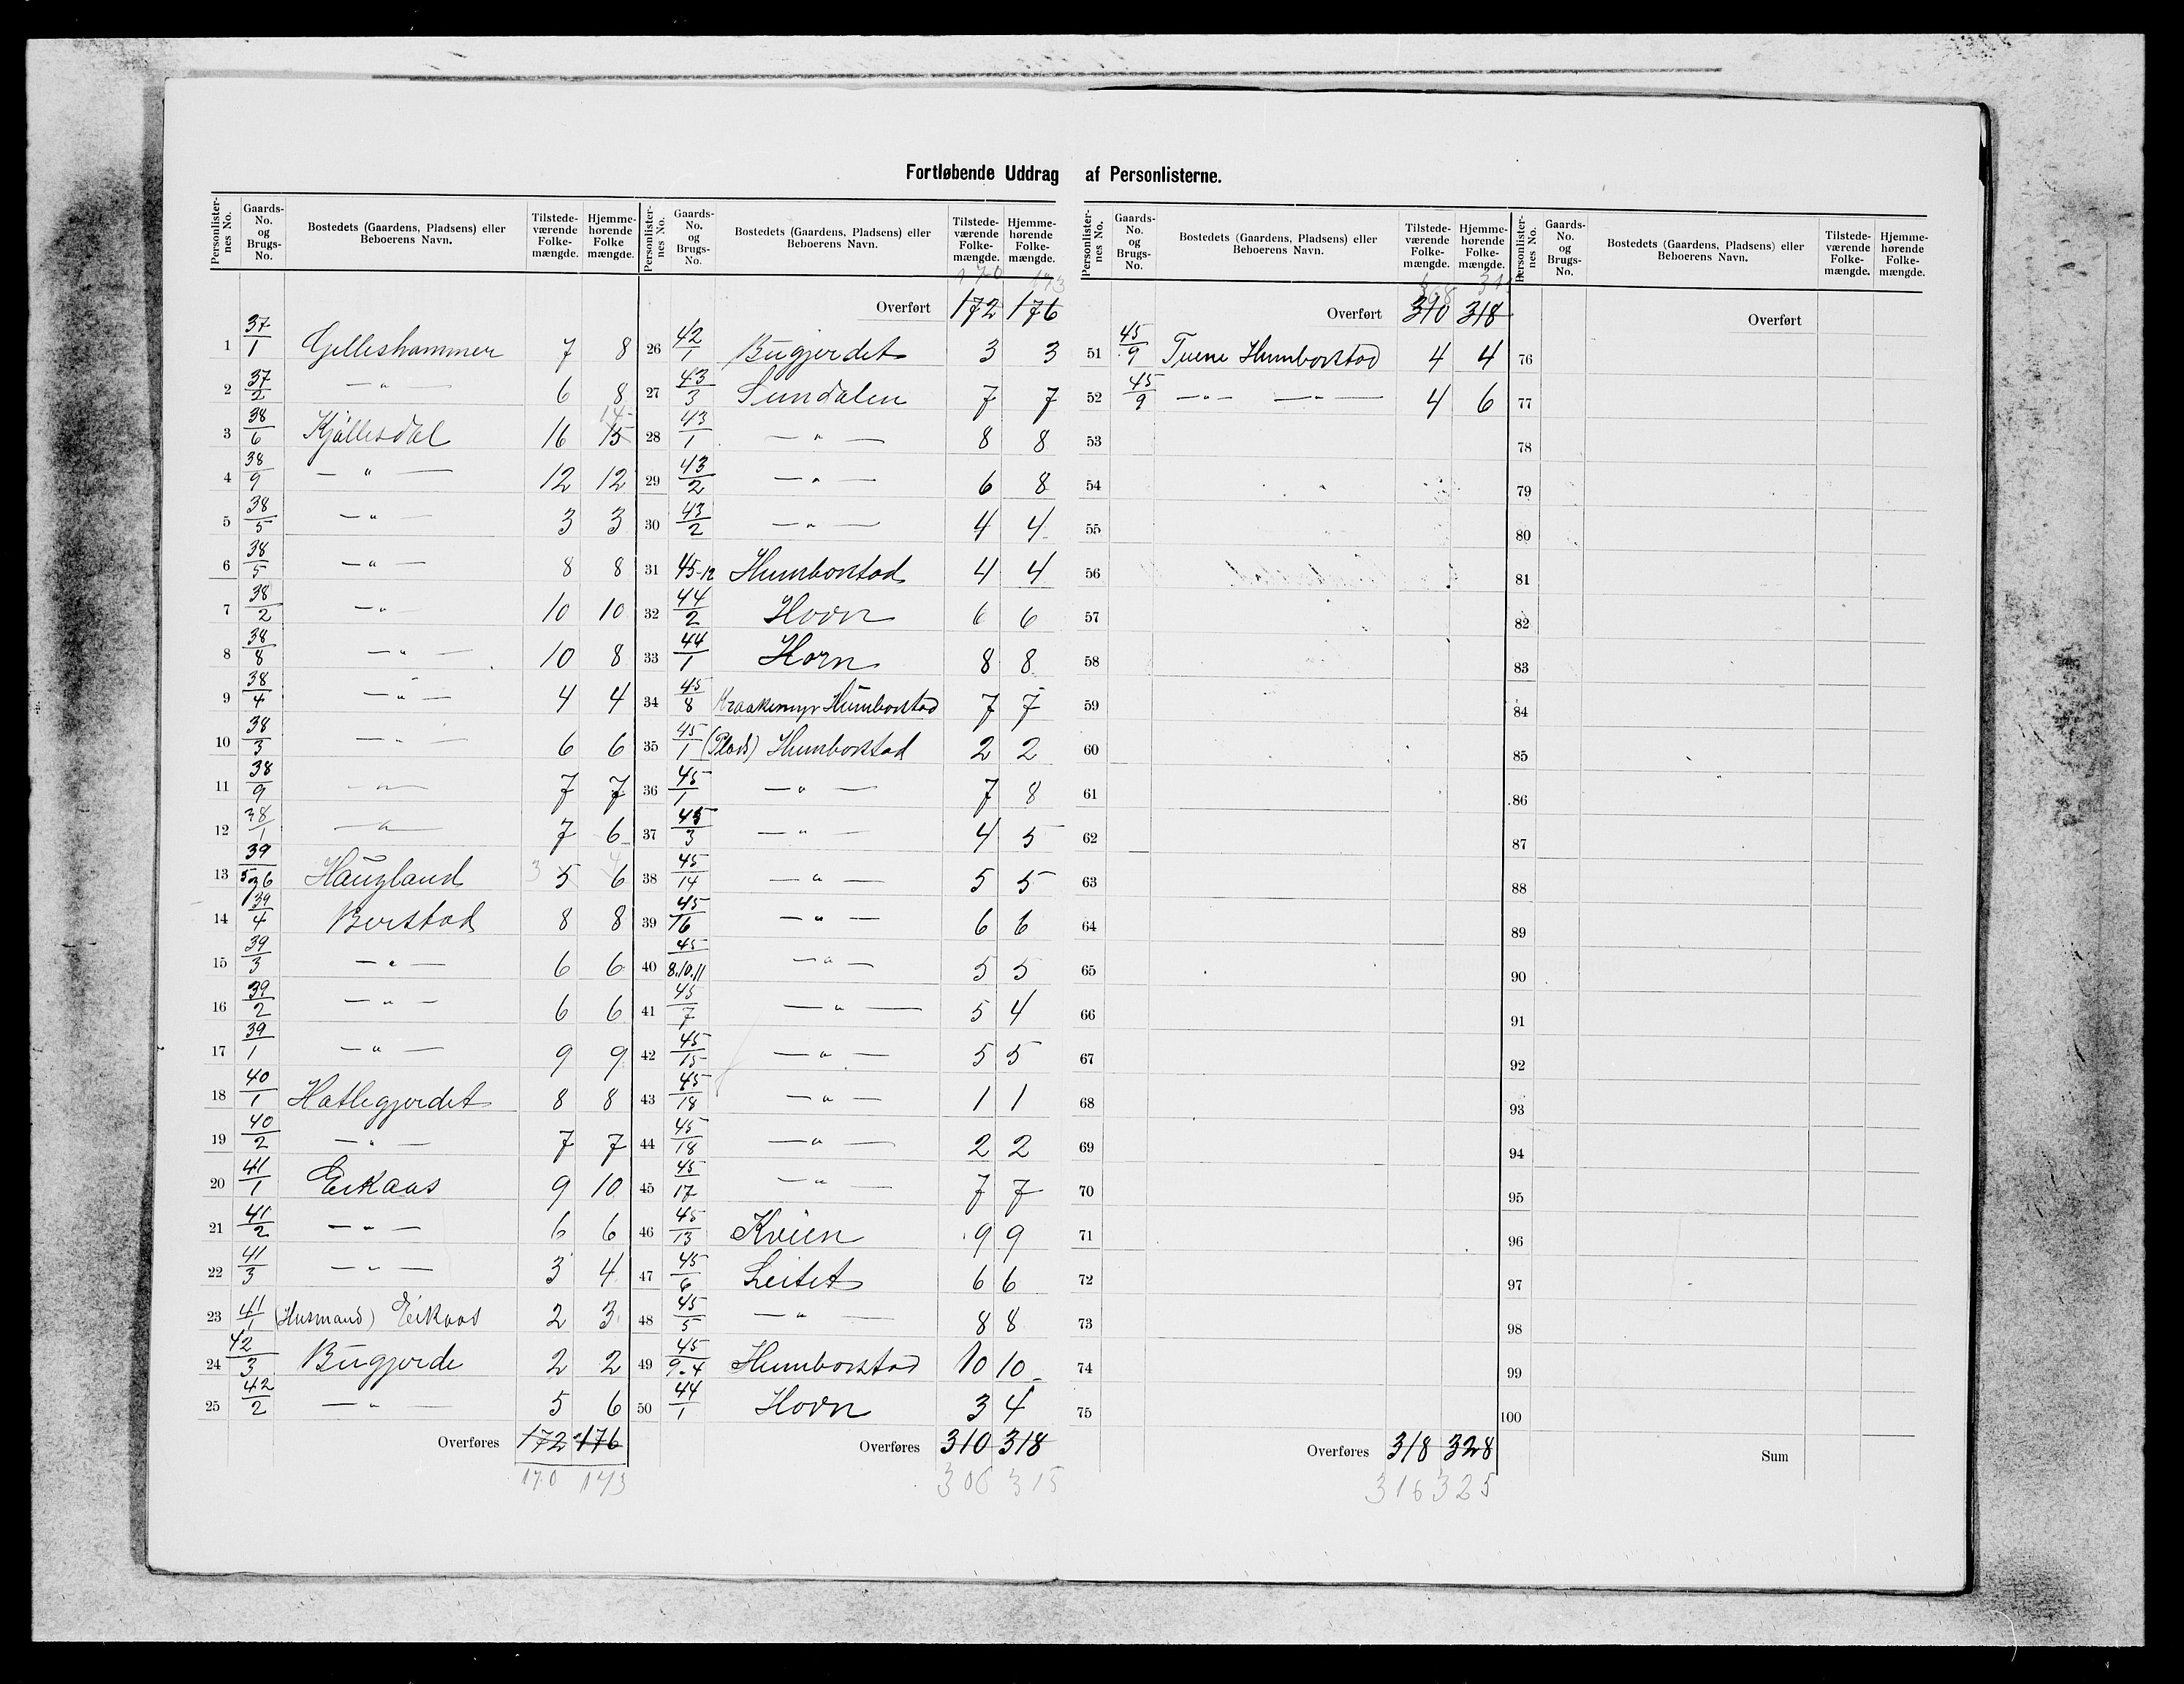 Fortløbende Uddrag af Personlisterne.
Personlister-nes No. | Gaards-No. og Brugs-No. | Bostedets (Gaardens, Pladsens) eller Beboerens Navn. | Tilstede-værende Folke-mængde. | Hjemme-hørende Folke mængde.
1 37/1 Gelleshammer 7 8
2 37/2 —„— 6 8
3 38/6 Kjällesdal 16 15 14
4 38/9 —„— 12 12
5 38/5 —„— 3 3
6 38/5 —„— 8 8
7 38/2 —„— 10 10
8 38/8 —„— 10 8
9 38/4 —„— 4 4
10 38/3 —„— 6 6
11 38/9 —„— 7 7
12 38/1 —„— 7 6
13 39/5 36 Haugland 3 5 4 6
14 39/4 Berstad 8 8
15 39/3 —„— 6 6
16 39/2 —„— 6 6
17 39/1 —„— 9 9
18 40/1 Hatlegjerdet 8 8
19 40/2 —„— 7 7
20 41/1 Eikaas 9 10
21 41/2 —„— 6 6
22 41/3 —„— 3 4
23 41/1 (Husmand) Eikaas 2 3
24 42/3 Bugjerde 2 2
25 42/2 —„— 5 6
Overføres 172 176
170 173
Personlister-nes No. | Gaards-No. og Brugs-No. | Bostedets (Gaardens, Pladsens) eller Beboerens Navn. | Tilstede-værende Folke-mængde. | Hjemme-hørende Folke-mængde.
170 173
Overført 172 176
26 42/1 Bugjerdet 3 3
27 43/3 Sundalen 7 7
28 43/1 —„— 8 8
29 43/2 —„— 6 8
30 43/2 —„— 4 4
31 45-12 Humborstad 4 4
32 44/2 Horn 6 6
33 44/1 Horn 8 8
34 45/8 Kraakemyr Humborstad 7 7
35 45/1 (Plads) Humborstad 2 2
36 45/1 —„— 7 8
37 45/3 —„— 4 5
38 45/14 —„— 5 5
39 45/16 —„— 6 6
40 45/8.10.11 —„— 5 5
41 45/7 —„— 5 4
42 45/15 —„— 5 5
43 45/18 —„— 1 1
44 45/18 —„— 2 2
45 45/17 —„— 7 7
46 45/13 Kvien 9 9
47 45/6 Leitet 6 6
48 45/5 —„— 8 8
49 45/9-4 Humborstad 10 10
50 44/1 Horn 3 4
Overføres 310 318
308 315
Personlister-nes No. | Gaards-No. og Brugs-No. | Bostedets (Gaardens, Pladsens) eller Beboerens Navn. | Tilstede-værende Folke-mængde. | Hjemme-hørende Folke-mængde.
308
Overført 310 318
51 45/9 Tuene Humborstad 4 4
52 45/9 —„— —„— 4 6
53
54
55
56
57
58
59
60
61
62
63
64
65
66
67
68
69
70
71
72
73
74
75
Overføres 318 328
316 325
Personlister-nes No. | Gaards-No. og Brugs-No. | Bostedets (Gaardens, Pladsens) eller Beboerens Navn. | Tilstede-værende Folke-mængde. | Hjemme-hørende Folke-mængde.
Overført
76
77
78
79
80
81
82
83
84
85
86
87
88
89
90
91
92
93
94
95
96
97
98
99
100
Sum